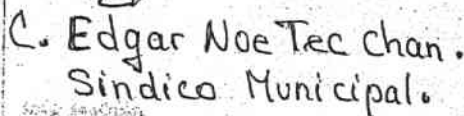 C. Edgar Noe Tec Chan.
Sindico Municipal.